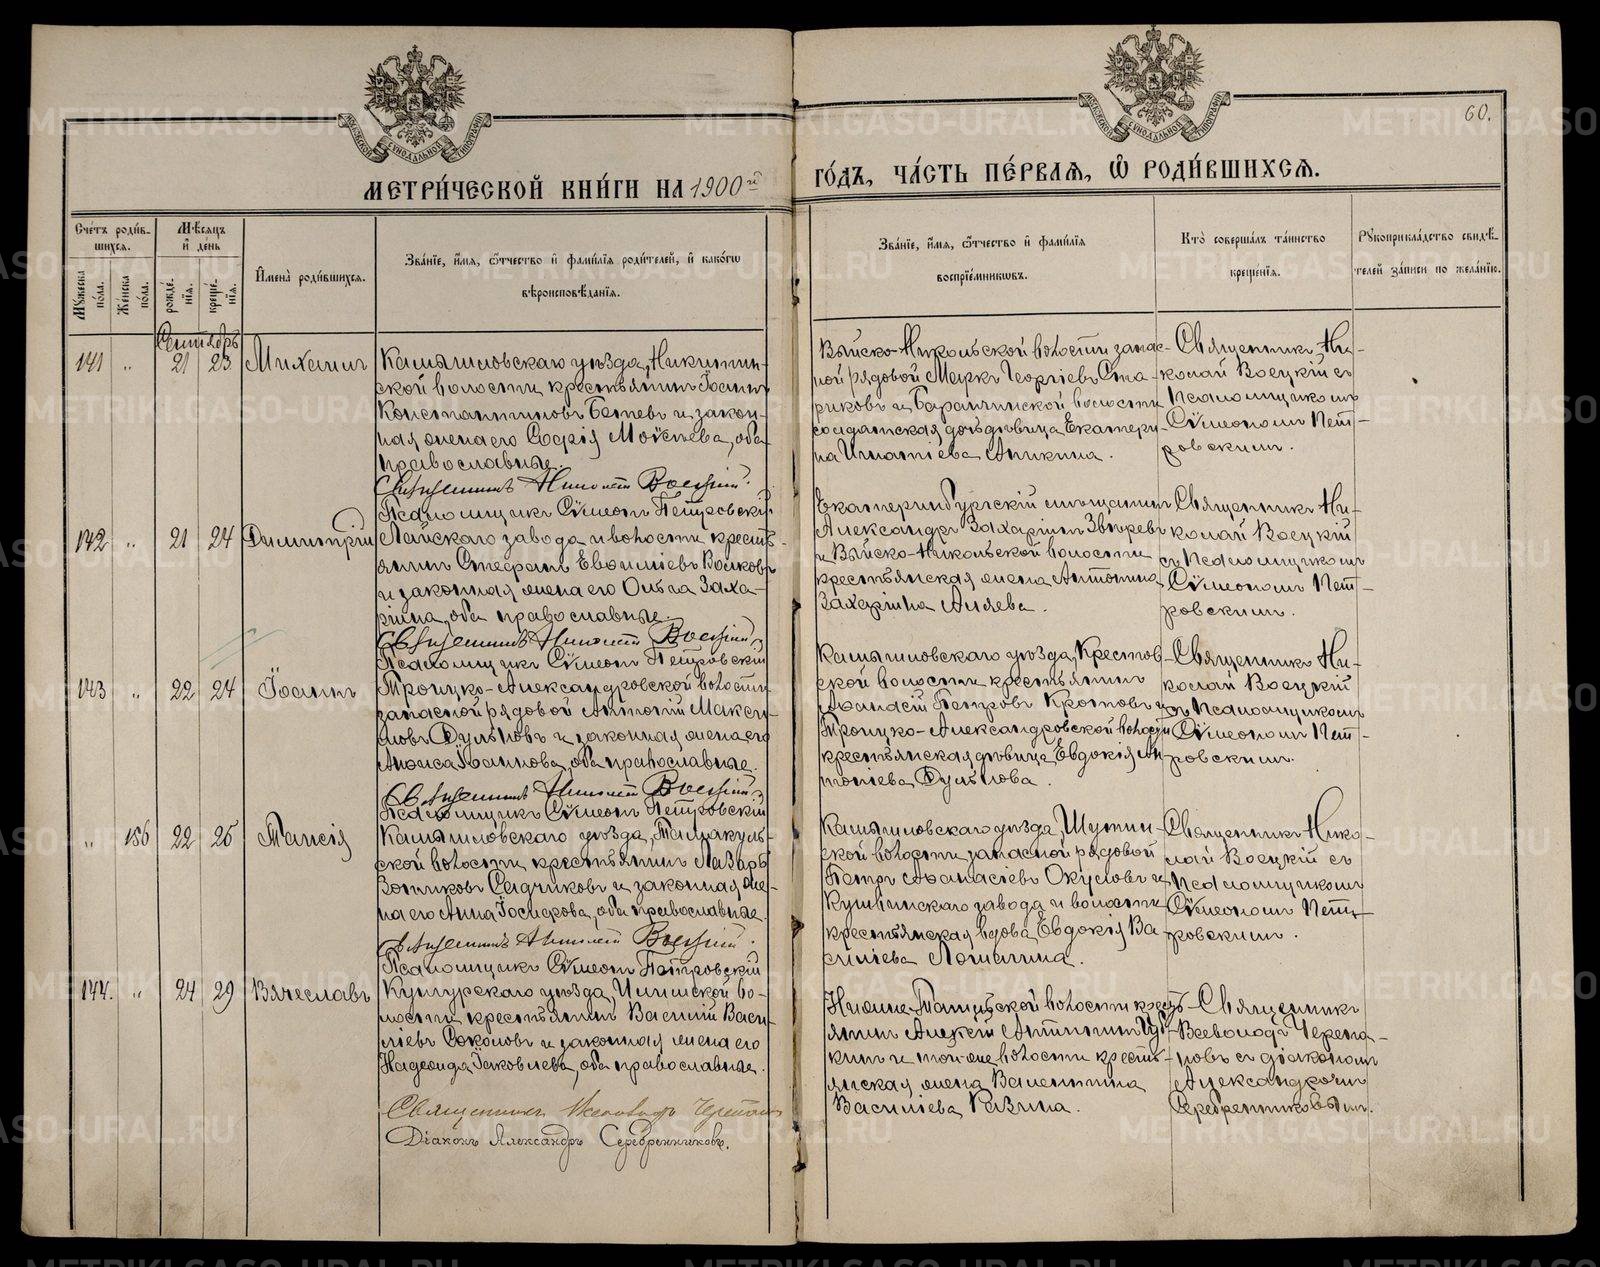 МЕТРИ́ЧЕСКОЙ КНИ́ГИ НА 1900й
ГО́ДЪ, ЧА́СТЬ ПЕ́РВАЯ, Ѡ РОДИ́ВШИХСЯ.
60.
Сче́тъ роди́в-
шихся.
Мѣсяцъ
и де́нь
Мꙋжеска
по́ла.
Же́нска
по́ла.
рожде́-
нїя.
креще́-
нїя.
И҆мена̀ роди́вшихся.
Зва́нїе, и҆́мя, ѻ҆́тчество и҆ фами́лїя роди́телей, и҆ како́гѡ
вѣроисповѣ́данїя.
Зва́нїе, и҆́мя, ѻ҆́тчество и҆ фами́лїя
воспрїе́мниковъ.
Кто̀ соверша́лъ та́инство
креще́нїя.
Рꙋкоприкла́дство свидѣ́-
телей за́писи по жела́нїю.
Сентябрь
141 " 21 23 Михаилъ
Камышловскаго уѣзда, Никитин-
ской волости, крестьянинъ Іоаннъ
Константиновъ Бѣтевъ и закон-
ная жена его Софія Моѵсѣева, оба
православные.
Священникъ Николай Воецкій.
Псаломщикъ Сѵмеонъ Петровскій
Выйско-Никольской волости запас-
ной рядовой Маркъ Георгіевъ Ста-
риковъ и Баранчинской волости
солдатская дочь дѣвица Екатери-
на Игнатіева Аникина.
Священникъ Ни-
колай Воецкій съ
Псаломщикомъ
Сѵмеономъ Пет-
ровскимъ.
142 " 21 24 Димитрій
Лайскаго завода и волости крестья-
янинъ Стефанъ Евѳиміевъ Волковъ
и законная жена его Ольга Заха-
ріина, оба православные.
Священникъ Николай Воецкій.
Псаломщикъ Сѵмеонъ Петровскій
Екатеринбургскій мѣщанинъ
Александръ Захаріинъ Звѣревъ
и Выйско-Никольской волости
крестьянская жена Антонина
Захаріина Аляева.
Священникъ Ни-
колай Воецкій
съ Псаломщикомъ
Сѵмеономъ Пет-
ровскимъ.
143 " 22 24 Іоаннъ
Троицко-Александровской волости
запасной рядовой Антоній Макси-
мовъ Дульповъ и законная жена его
Анисія Іоаннова, оба православные.
Священникъ Николай Воецкій.
Псаломщикъ Сѵмеонъ Петровскій
Камышловскаго уѣзда, Крестов-
ской волости крестьянинъ
Аѳанасій Петровъ Кротовъ и
Троицко-Александровской волости
крестьянская дѣвица Евдокія Ан-
тоніева Дульпова.
Священникъ Ни-
колай Воецкій
съ Псаломщикомъ
Сѵмеономъ Пет-
ровскимъ.
" 156 22 25 Таисія
Камышловскаго уѣзда, Талмакуль-
ской волости крестьянинъ Лазарь
Зотиковъ Садчиковъ и законная же-
на его Анна Іосифова, оба православные.
Священникъ Николай Воецкій.
Псаломщикъ Сѵмеонъ Петровскій
Камышловскаго уѣзда, Шутин-
ской волости запасной рядовой
Петръ Аѳанасіевъ Окуловъ и
Кушвинскаго завода и волости
крестьянская вдова Евдокія Ва-
силіева Лошагина.
Священникъ Нико-
лай Воецкій съ
Псаломщикомъ
Сѵмеономъ Пет-
ровскимъ.
144. " 24 29 Вячеславъ
Кунгурскаго уѣзда, во-
лости, крестьянинъ Василій Васи-
ліевъ Соколовъ и законная жена его
Надежда Іаковлева, оба православные.
Священникъ Всеволодъ Черепановъ
Діаконъ Александръ Серебренниковъ.
Нижне-Тагильской волости кресть-
янинъ Алексѣй
и той же волости кресть-
янская жена Валентина
Василіева Разина.
Священникъ
Всеволодъ Черепа-
новъ съ діакономъ
Александромъ
Серебренниковымъ.